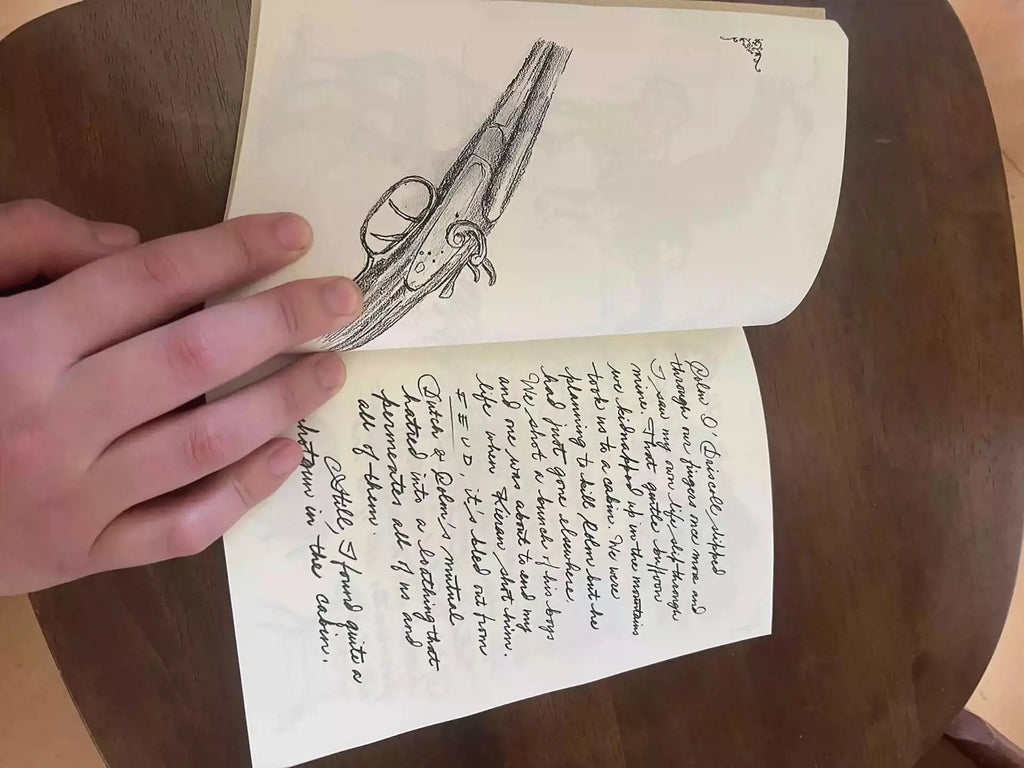 Colm O'Driscoll slipped
through our fingers once more and
I saw my own life slip through
mine. That quitter buffoon
we kidnapped up in the mountains
took us to a cabin. We were
planning to kill Colm but he
had just gone elsewhere.
We shot a bunch of his boys
and one was about to end my
life when Kieran shot him.
FEUD, it's bled out from
Dutch & Colm's mutual
hatred into a loathing that
permeates all of us and
all of them.
Still, I found quite a
shotgun in the cabin.